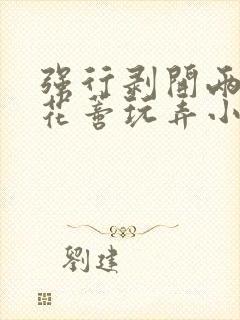 强行剥開兩
花蕾玩弄小
劉建